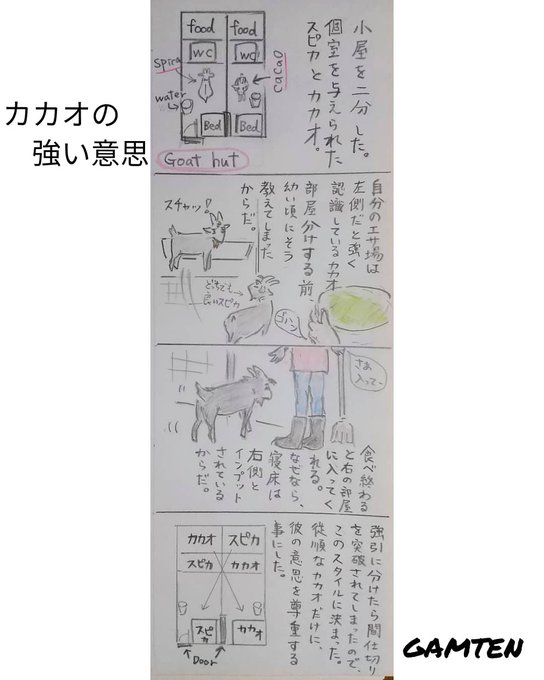 カカオの
強い意思
小屋を二分した。
個室を与えられた
スピカとカカオ。
food
food
WC
WC
spica
cacao
water
Bed
Bed
Goat hut
自分のエサ場は
左側だと強く
認識しているカカオ
部屋分けする前、
幼い頃にそう
教えてしまった
からだ。
スチャッ!
どっちでも
良いスピカ
ゴハン
さぁ
入って、
食べ終わる
と右の部屋
に入ってく
れる。
なぜなら、
寝床は
右側と
インプット
されている
からだ。
強引に分けたら間仕切り
を突破されてしまったので、
このスタイルに決まった。
従順なカカオだけに、
彼の意思を尊重する
事にした。
カカオ
スピカ
スピカ
カカオ
スピカ
カカオ
Door
GAMTEN